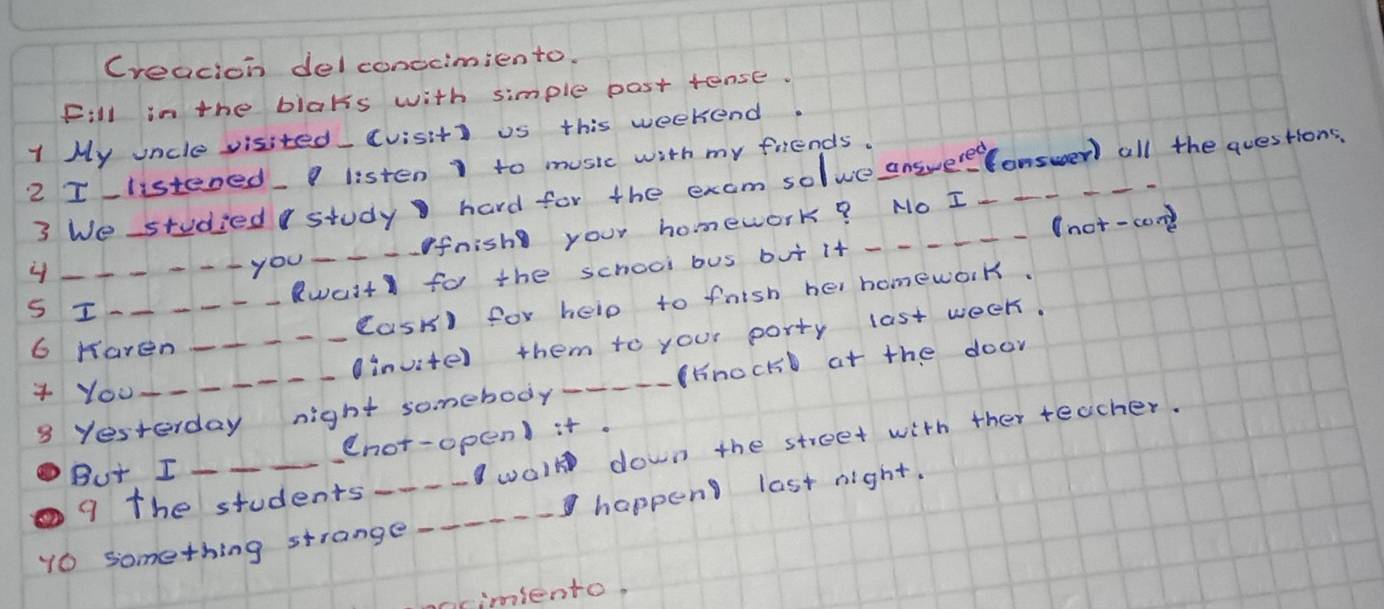 Creación del conocimiento.
Fill in the blaks with simple past tense.
1 My uncle visited (visit) us this weekend.
2 I listened (listen) to music with my friends.
3 We studied (study) hard for the exam so we answered (answer) all the questions.
4 ______ you ____ (finish) your homework? No I ______.
5 I ______ (wait) for the school bus but it ______ (not-come)
6 Karen _____ (ask) for help to finish her homework.
7 You _______ (invite) them to your party last week.
8 Yesterday night somebody _____ (knock) at the door
But I _____ (not-open) it.
9 The students ____ (walk) down the street with ther teacher.
10 something strange ______ (happen) last night.